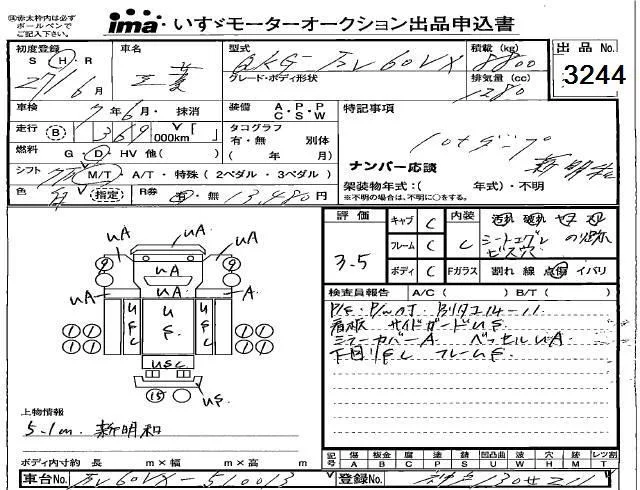 ※赤太枠内は必ず
ボールペンで
ご記入下さい。
ima いすゞモーターオークション出品申込書
初度登録 車名 型式 積載 (kg) 出品 No.
S H R 27/6月 三菱 QKG-FV60VX 8800
グレード・ボディ形状 排気量 (cc) 3244
1280
車検 7年6月・抹消 装備 A・P・P C・S・W 特記事項
走行 B 1 369 000km タコグラフ 有・無 別体 10tダンプ
燃料 G・D・HV 他( ) ( 年 月) 新明和
シフト M/T・A/T・特殊 (2ペダル・3ペダル) ナンバー応談
架装物年式:( 年式)・不明
※不明の場合は、不明に○をする。
色 (指定) R券 有・無 13,480円
評価 3.5
キャブ C 内装 C
シートコゲ
ビス穴
フレーム C
ボディ C Fガラス 割れ 線 点傷 イバリ
検査員報告 A/C( ) B/T( )
看板 サイドガードUF
ミラーカバーA ベッセルUA
下回りFC フレームF
uA uA uA
uA uA A
9 9
UF UF UF
USC
15 UF
上物情報
5-1m 新明和
ボディ内寸約 長 m×幅 m×高 m
記号 傷 板金 腐 塗 錆 凹凸曲 波 穴 跡 レツ割
A B C P S U W H M T
車台No. FV60VX-510013 登録No. 130せ211